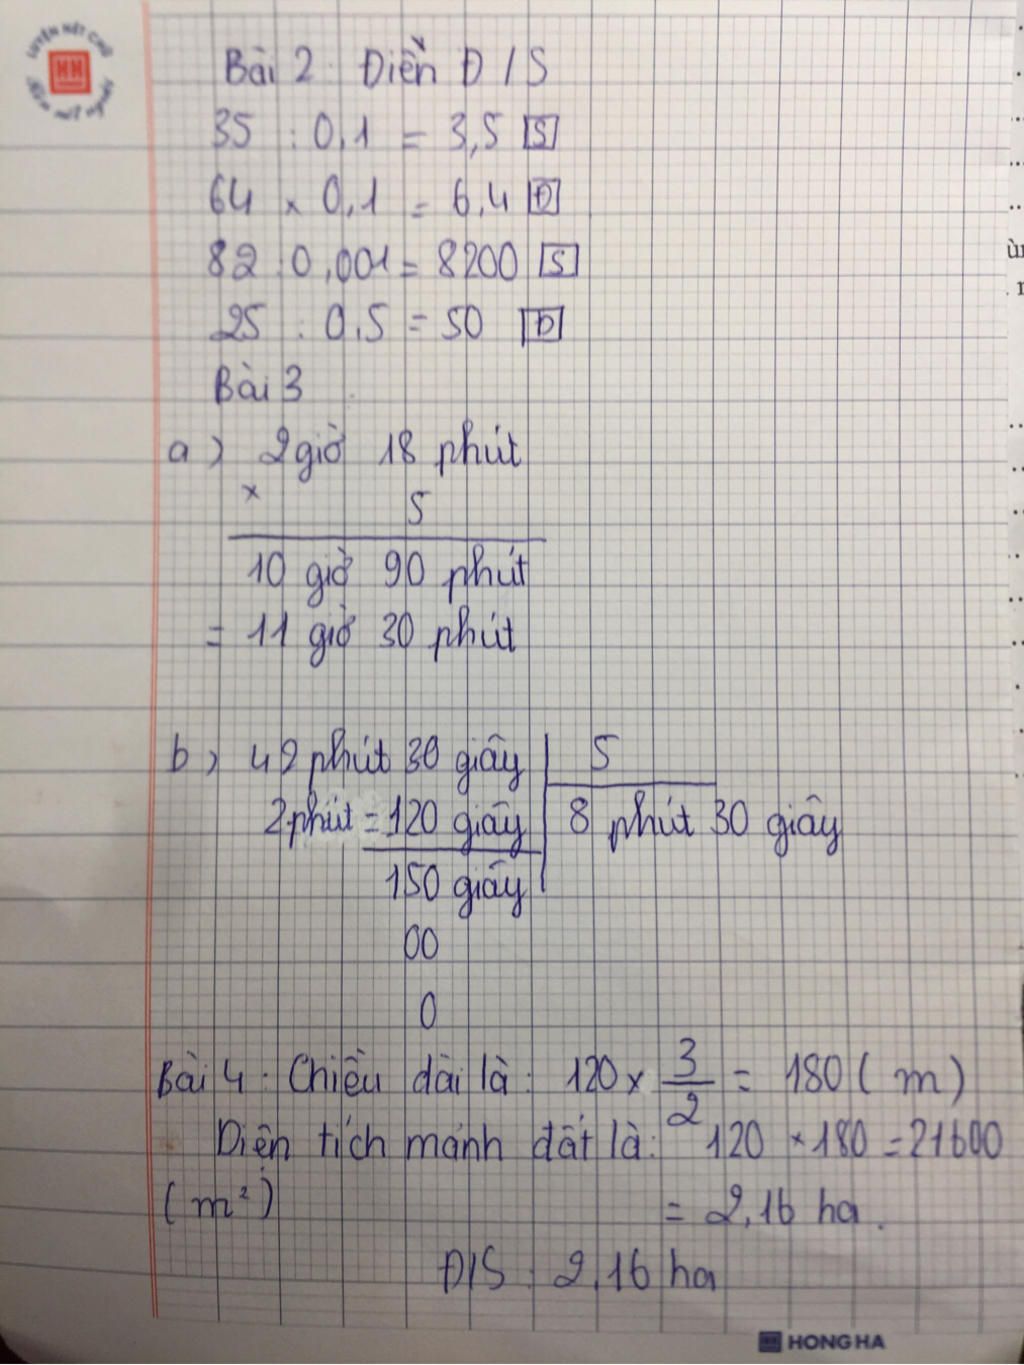 LUYỆN NÉT CHỮ
HH
Rèn nết người
Bài 2 : Điền Đ/S
35 : 0,1 = 3,5 S
64 x 0,1 = 6,4 Đ
82 : 0,001 = 8200 S
25 : 0,5 = 50 Đ
Bài 3
a) 2 giờ 18 phút
x 5
10 giờ 90 phút
= 11 giờ 30 phút
b) 42 phút 30 giây 5
2 phút = 120 giây 8 phút 30 giây
150 giây
00
0
Bài 4 : Chiều dài là : 120 x 3/2 = 180 ( m )
Diện tích mảnh đất là : 120 x 180 = 21600
( m² ) = 2,16 ha .
Đ/S : 2,16 ha
HONG HA